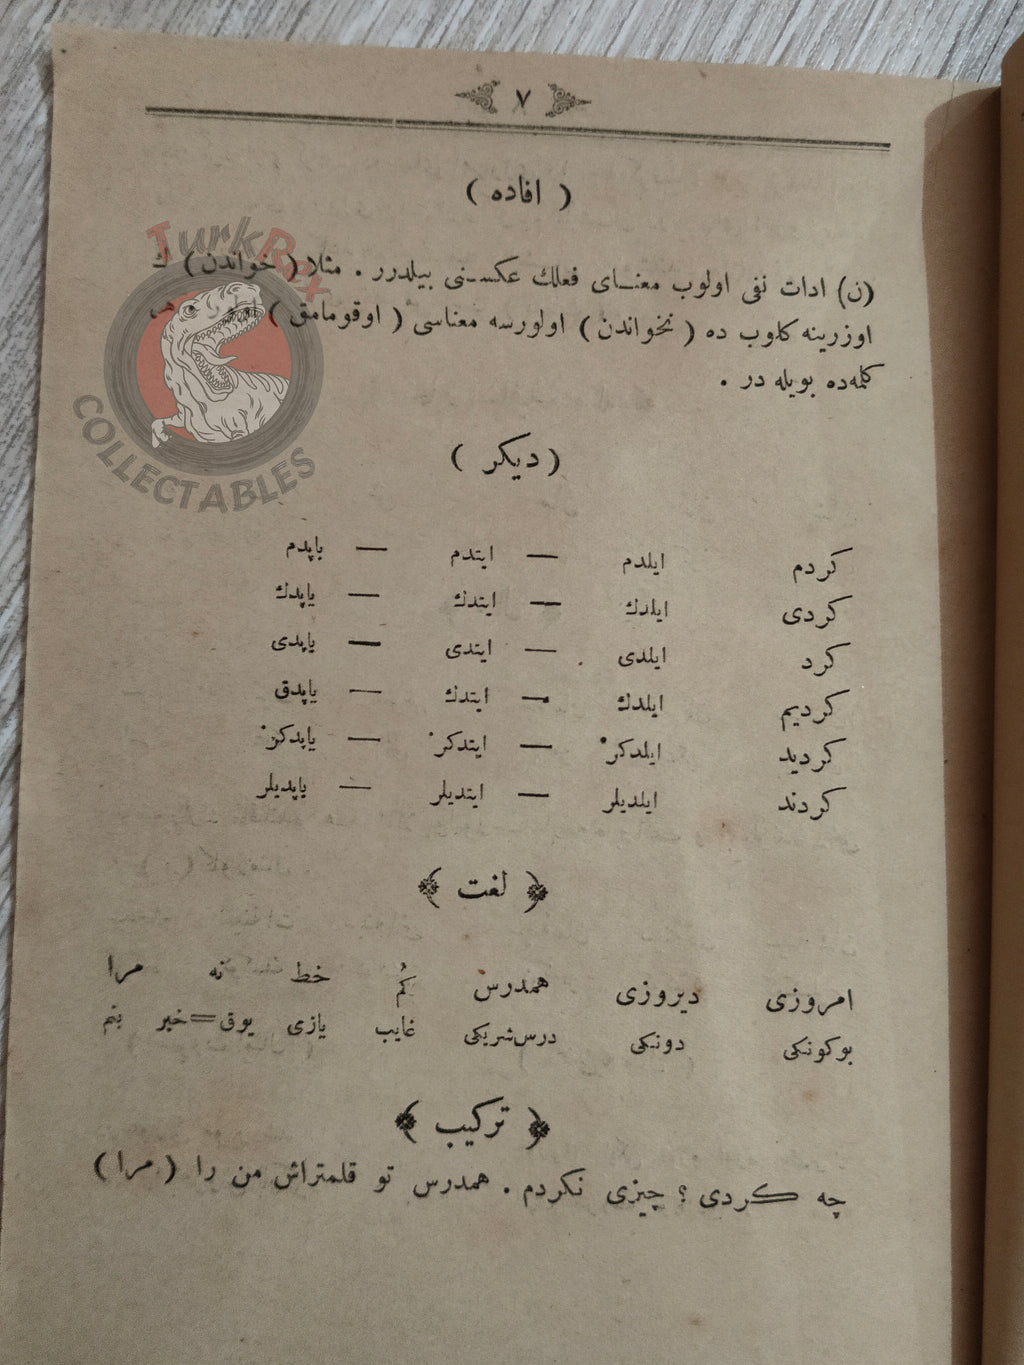 ٧
( افاده )
(ن) ادات نفی اولوب معنای فعلك عكسنی بیلدرر . مثلا ( خواندن ) ك
اوزرینه كلوب ده ( نخواندن ) اولورسه معناسی ( اوقومامق )
كلمه‌ده بویله در .
( دیكر )
كردم ایلدم — ایتدم — یاپدم
كردی ایلدك — ایتدك — یاپدك
كرد ایلدی — ایتدی — یاپدی
كردیم ایلدك — ایتدك — یاپدق
كردید ایلدكز — ایتدكز — یاپدكز
كردند ایلدیلر — ایتدیلر — یاپدیلر
﴿ لغت ﴾
امروزی دیروزی همدرس كُم خط نه مرا
بوكونكی دونكی درس‌شریكی غایب یازی یوق=خیر بنم
﴿ تركیب ﴾
چه كردی ؟ چیزی نكردم . همدرس تو قلمتراش من را ( مرا )
TurkRex
COLLECTABLES